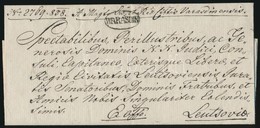 VARASD
Spectabilibus, Perillustribus, ac Ge-
nerosis Dominis N. N. Judici, Con-
suli, Capitaneo, Caeterisque Liberae ac
Regiae Civitatis Leutsoviensis Jura-
tis Senatoribus, Dominis Fratribus, et
Amicis Nobis Singulariter Colendis
Simis.
Ex Offo.
Leutsovia